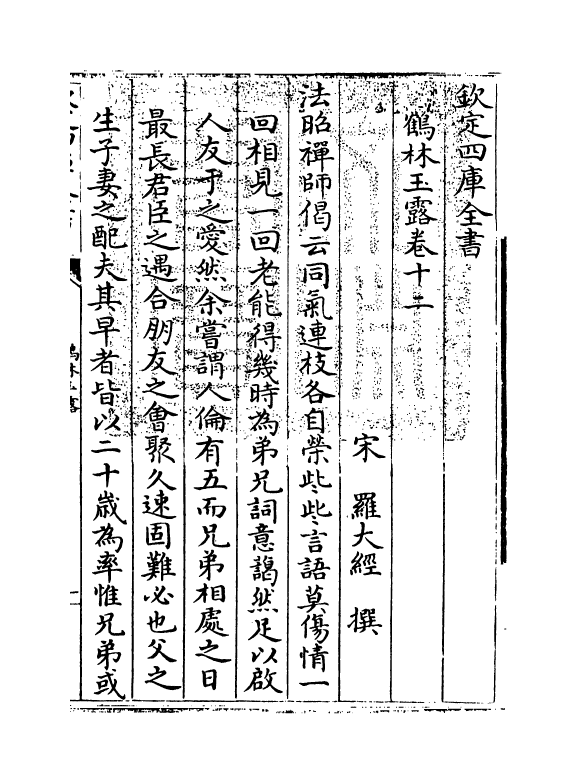 欽定四庫全書
鶴林玉露卷十二
宋 羅大經 撰
法昭禪師偈云同氣連枝各自榮些些言語莫傷情一
回相見一回老能得幾時為弟兄詞意藹然足以啟
人友于之愛然余嘗謂人倫有五而兄弟相處之日
最長君臣之遇合朋友之會聚久速固難必也父之
生子妻之配夫其早者皆以二十歲為率惟兄弟或